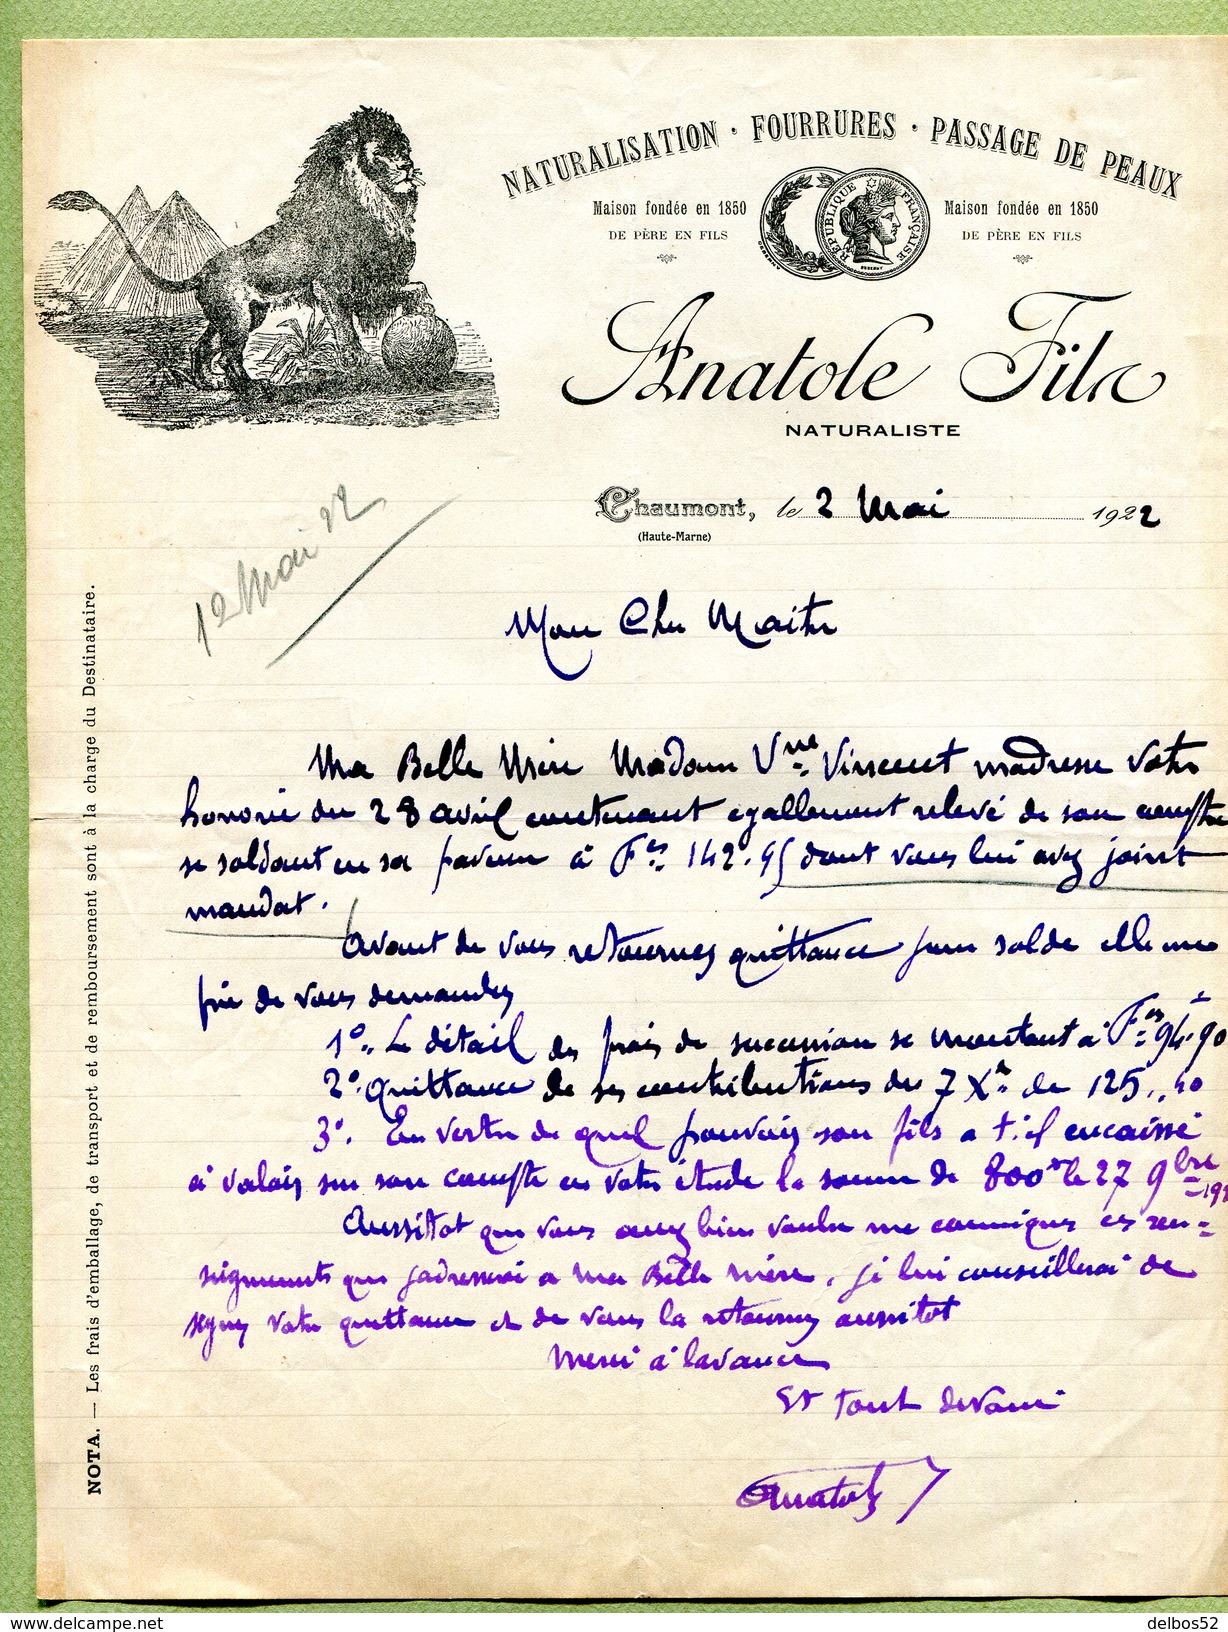 NATURALISATION · FOURRURES · PASSAGE DE PEAUX
Maison fondée en 1850
DE PÈRE EN FILS
RÉPUBLIQUE FRANÇAISE
Maison fondée en 1850
DE PÈRE EN FILS
Anatole Fils
NATURALISTE
Chaumont, le 2 Mai 1922
(Haute-Marne)
12 Mai 22
Mon Cher Maitre
Ma Belle Mère Madame Vve Vincent madresse Votre
honorée du 28 avril contenant egallement relevé de son compte
se soldant en sa faveur à Fcs 142.95 dont vous lui avez joint
mandat.
Avant de vous retournez quittance pour solde elle me
prie de vous demandez
1º. Le détail des frais de succession se montant à Fcs 94.90
2º. quittance de ses contributions du 7 Xre de 125,,40
3º. En vertu de quel pouvoir son fils a t'il encaissé
à valoir sur son compte en votre étude la somme de 800 le 27 9bre 192
Aussitot que vous aurez bien voulu me comuniquer ces ren=
seignements que jadresserai a ma Belle mère, je lui conseillerai de
signez votre quittance et de vous la retournez aussitot
Merci à lavance
Et tout devoué
Anatole
NOTA. — Les frais d'emballage, de transport et de remboursement sont à la charge du Destinataire.
www.delcampe.net
delbos52